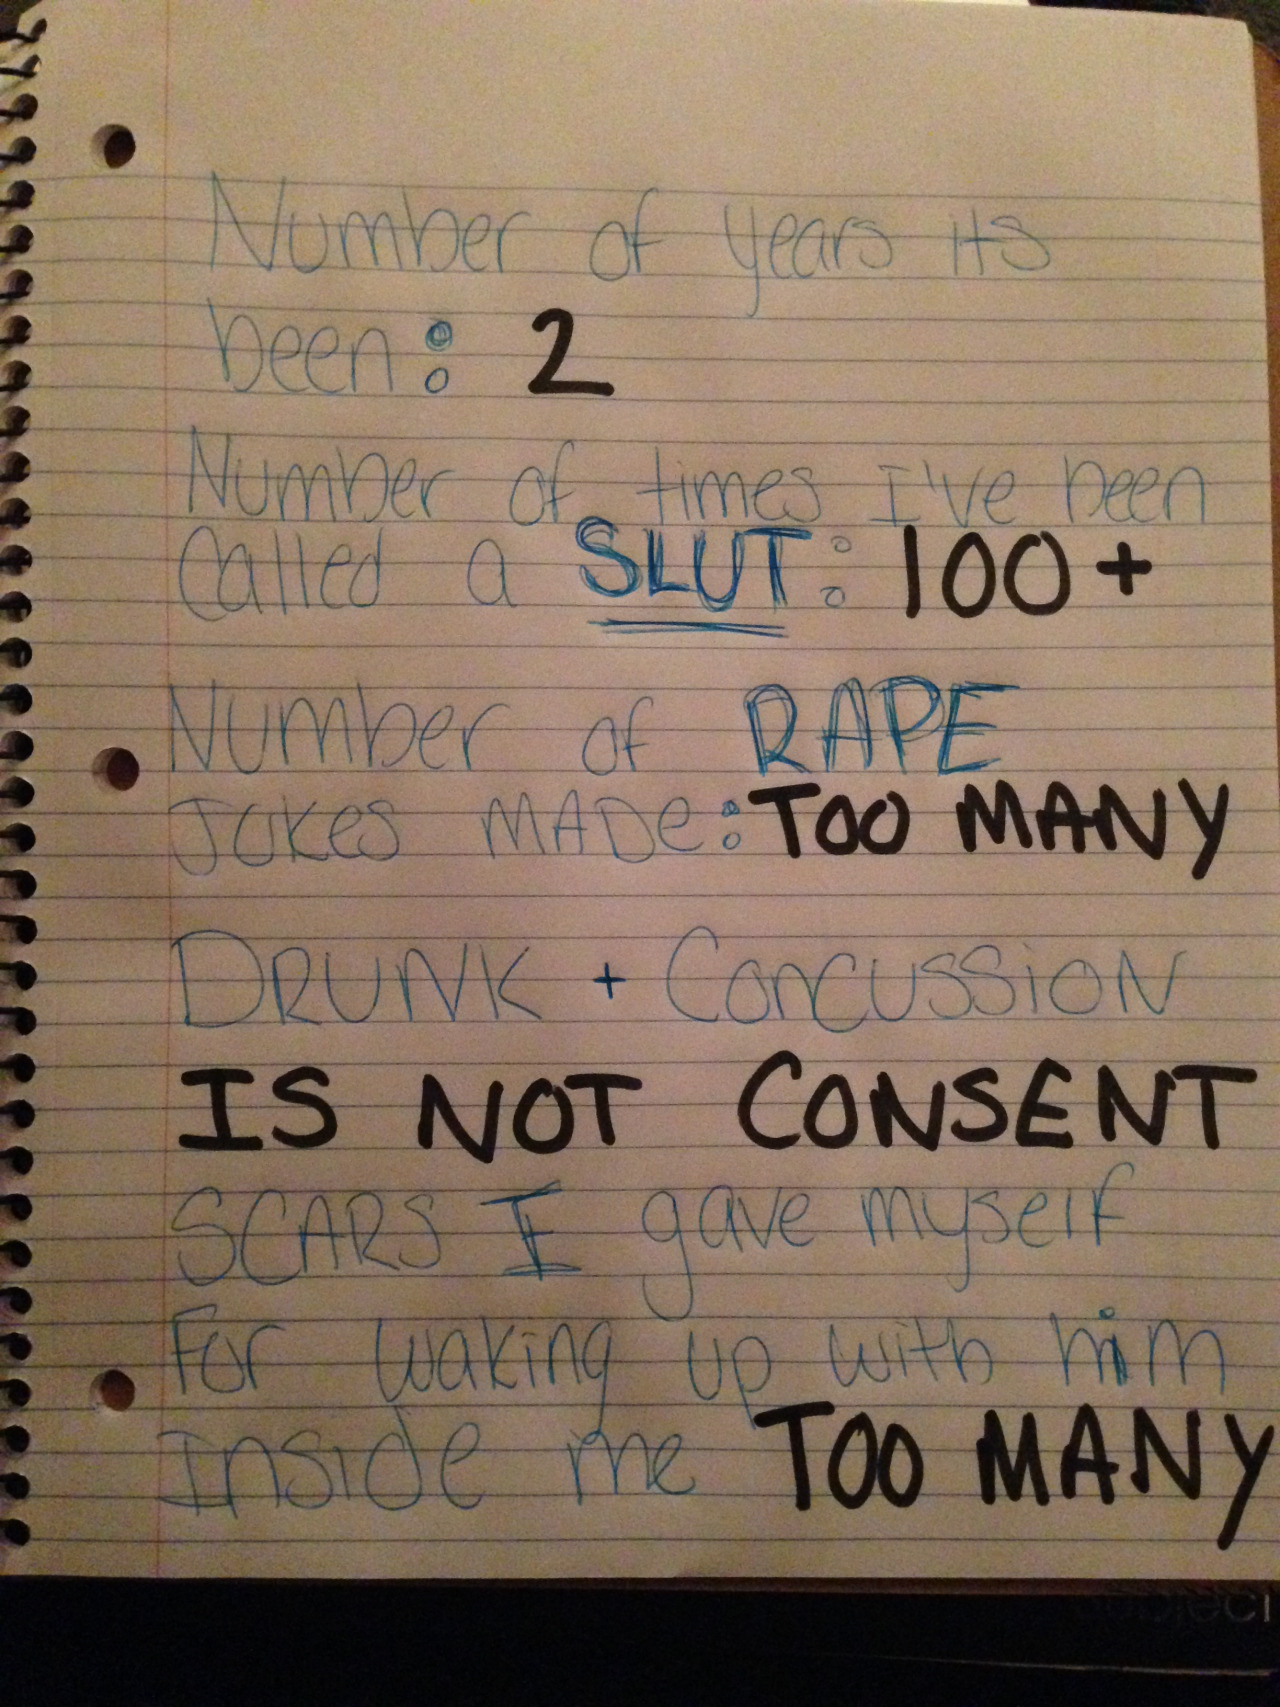 Number of years its
been: 2
Number of times I've been
called a SLUT: 100+
Number of RAPE
Jokes MADe: TOO MANY
DRUNK + Concussion
IS NOT CONSENT
SCARS I gave myself
For waking up with him
Inside me TOO MANY